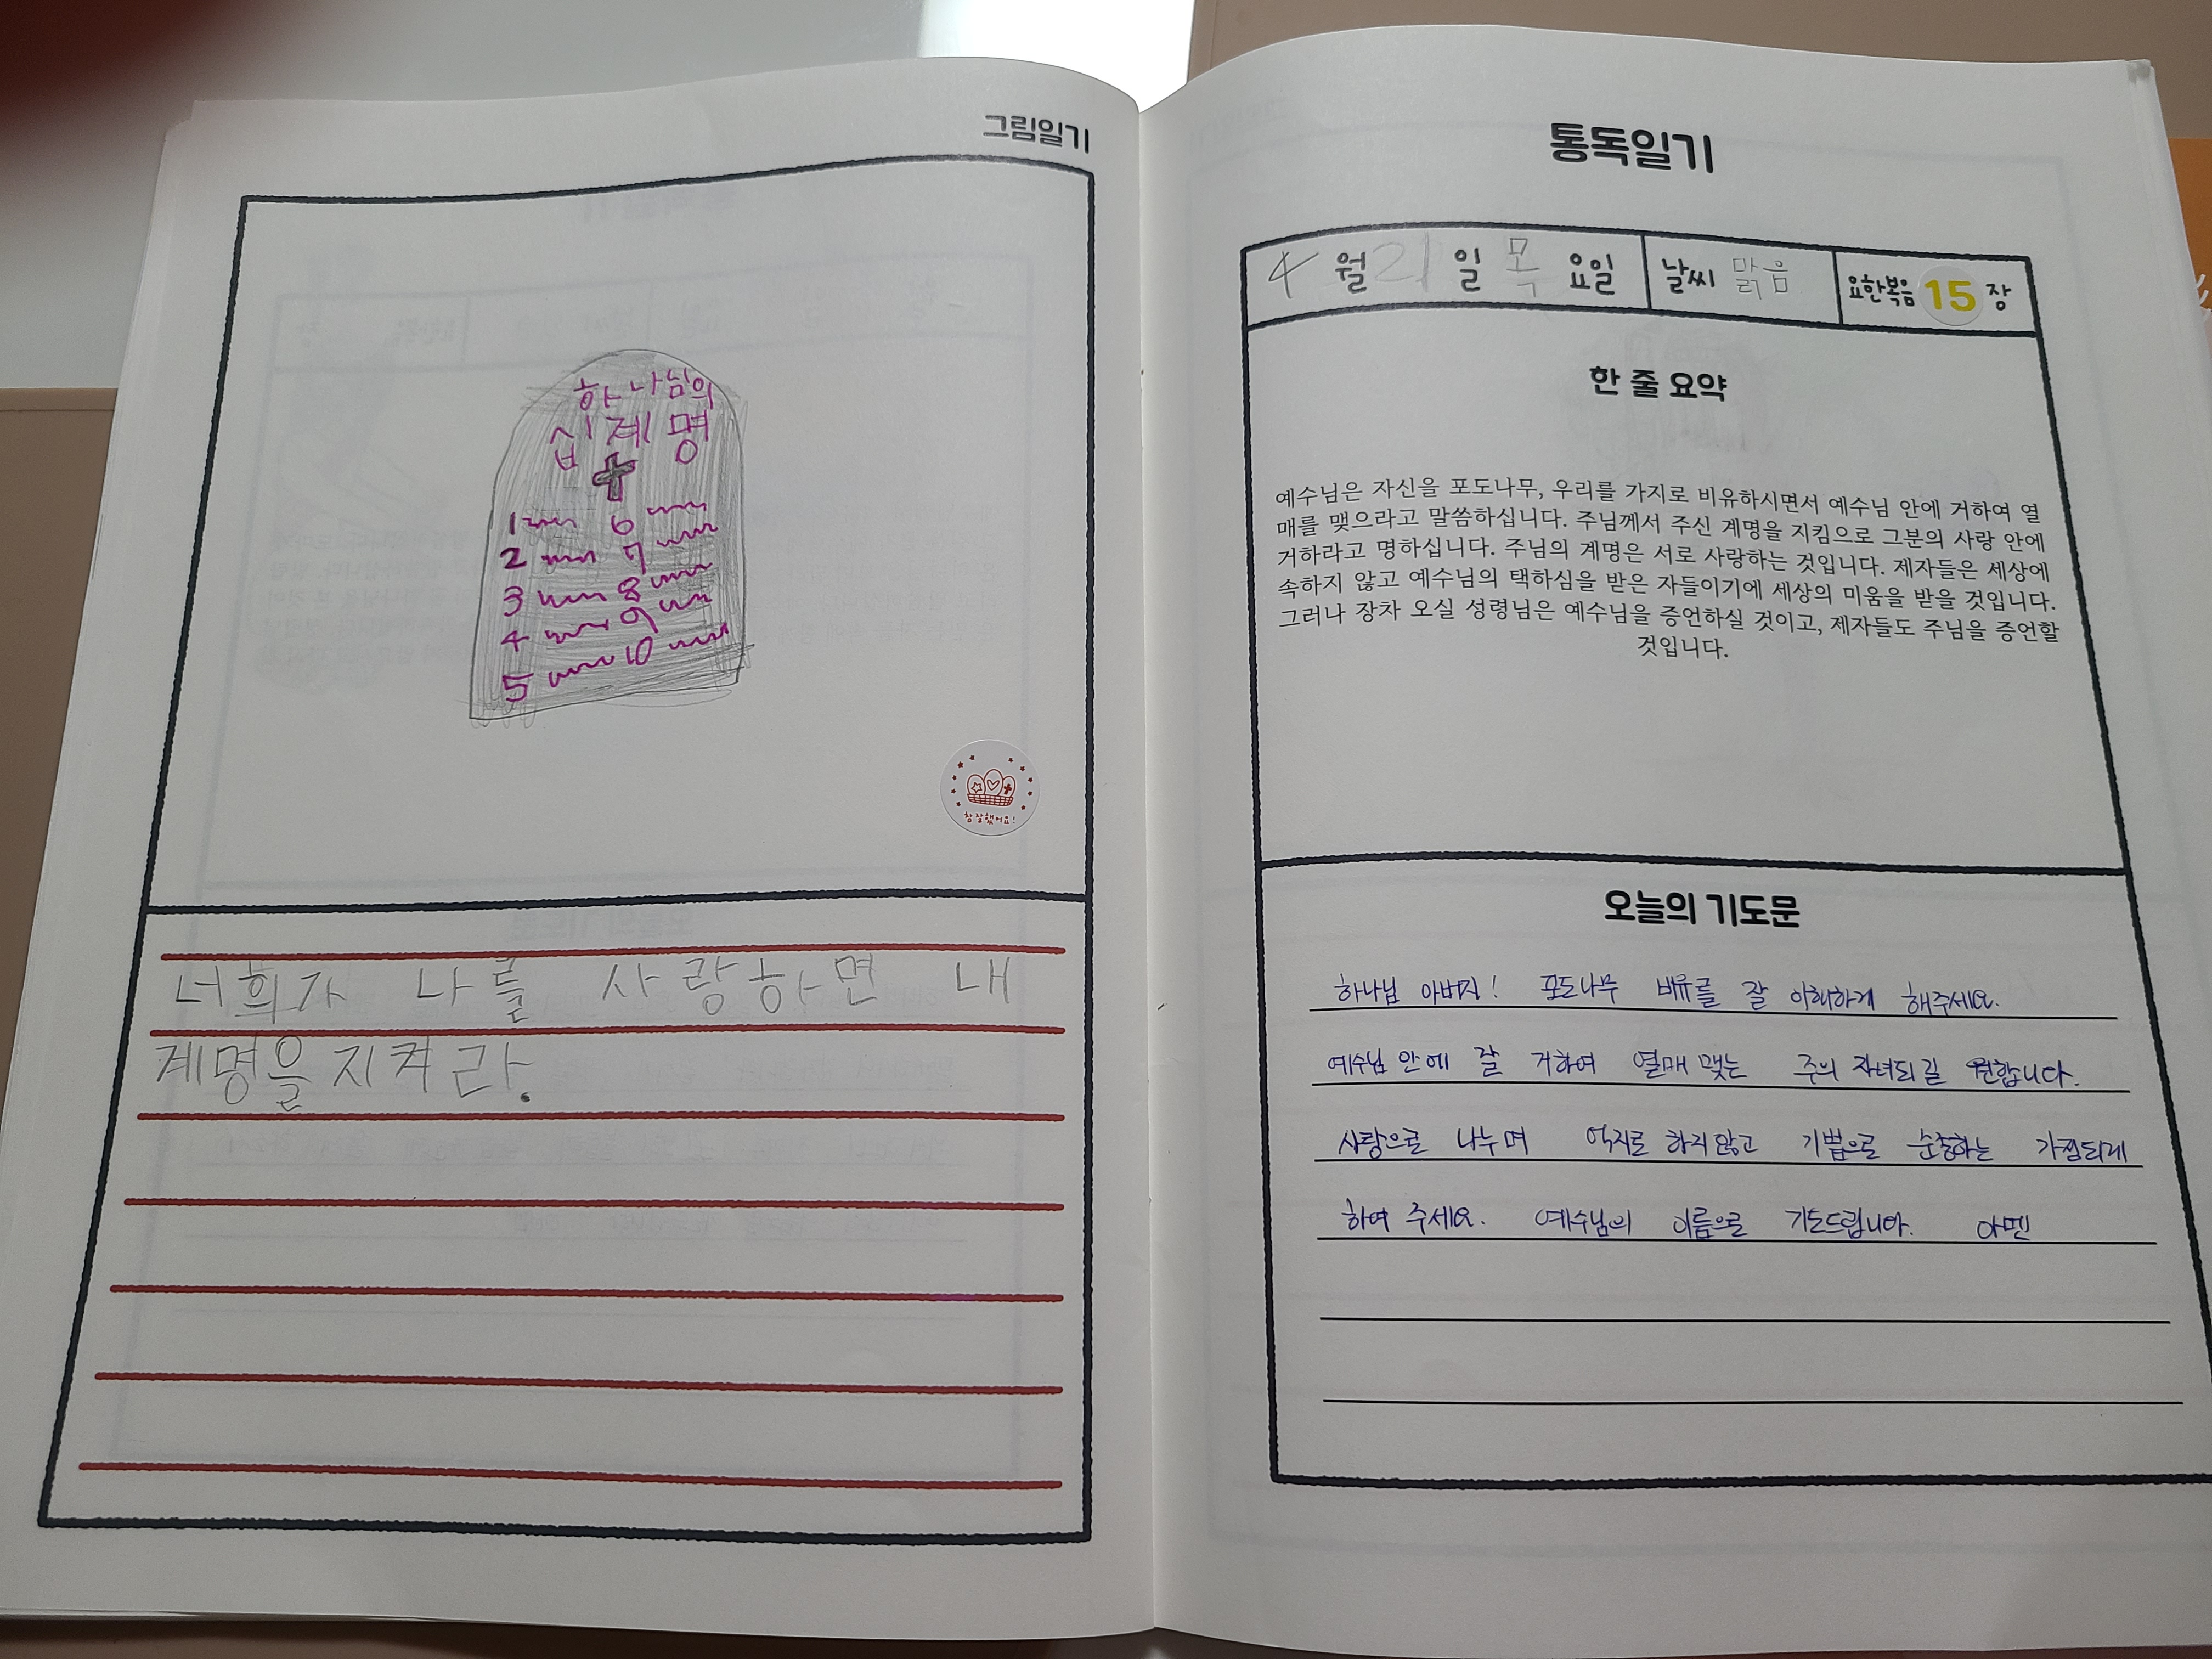 그림일기
하나님의
십계명
1 6
2 7
3 8
4 9
5 10
참 잘했어요!
너희가 나를 사랑하면 내
계명을 지켜라.
통독일기
4월 21일 목요일 날씨 맑음 요한복음 15장
한 줄 요약
예수님은 자신을 포도나무, 우리를 가지로 비유하시면서 예수님 안에 거하여 열
매를 맺으라고 말씀하십니다. 주님께서 주신 계명을 지킴으로 그분의 사랑 안에
거하라고 명하십니다. 주님의 계명은 서로 사랑하는 것입니다. 제자들은 세상에
속하지 않고 예수님의 택하심을 받은 자들이기에 세상의 미움을 받을 것입니다.
그러나 장차 오실 성령님은 예수님을 증언하실 것이고, 제자들도 주님을 증언할
것입니다.
오늘의 기도문
하나님 아버지! 포도나무 비유를 잘 이해하게 해주세요.
예수님 안에 잘 거하여 열매 맺는 주의 자녀되길 원합니다.
사랑으로 나누며 억지로 하지않고 기쁨으로 순종하는 가정되게
하여 주세요. 예수님의 이름으로 기도드립니다. 아멘